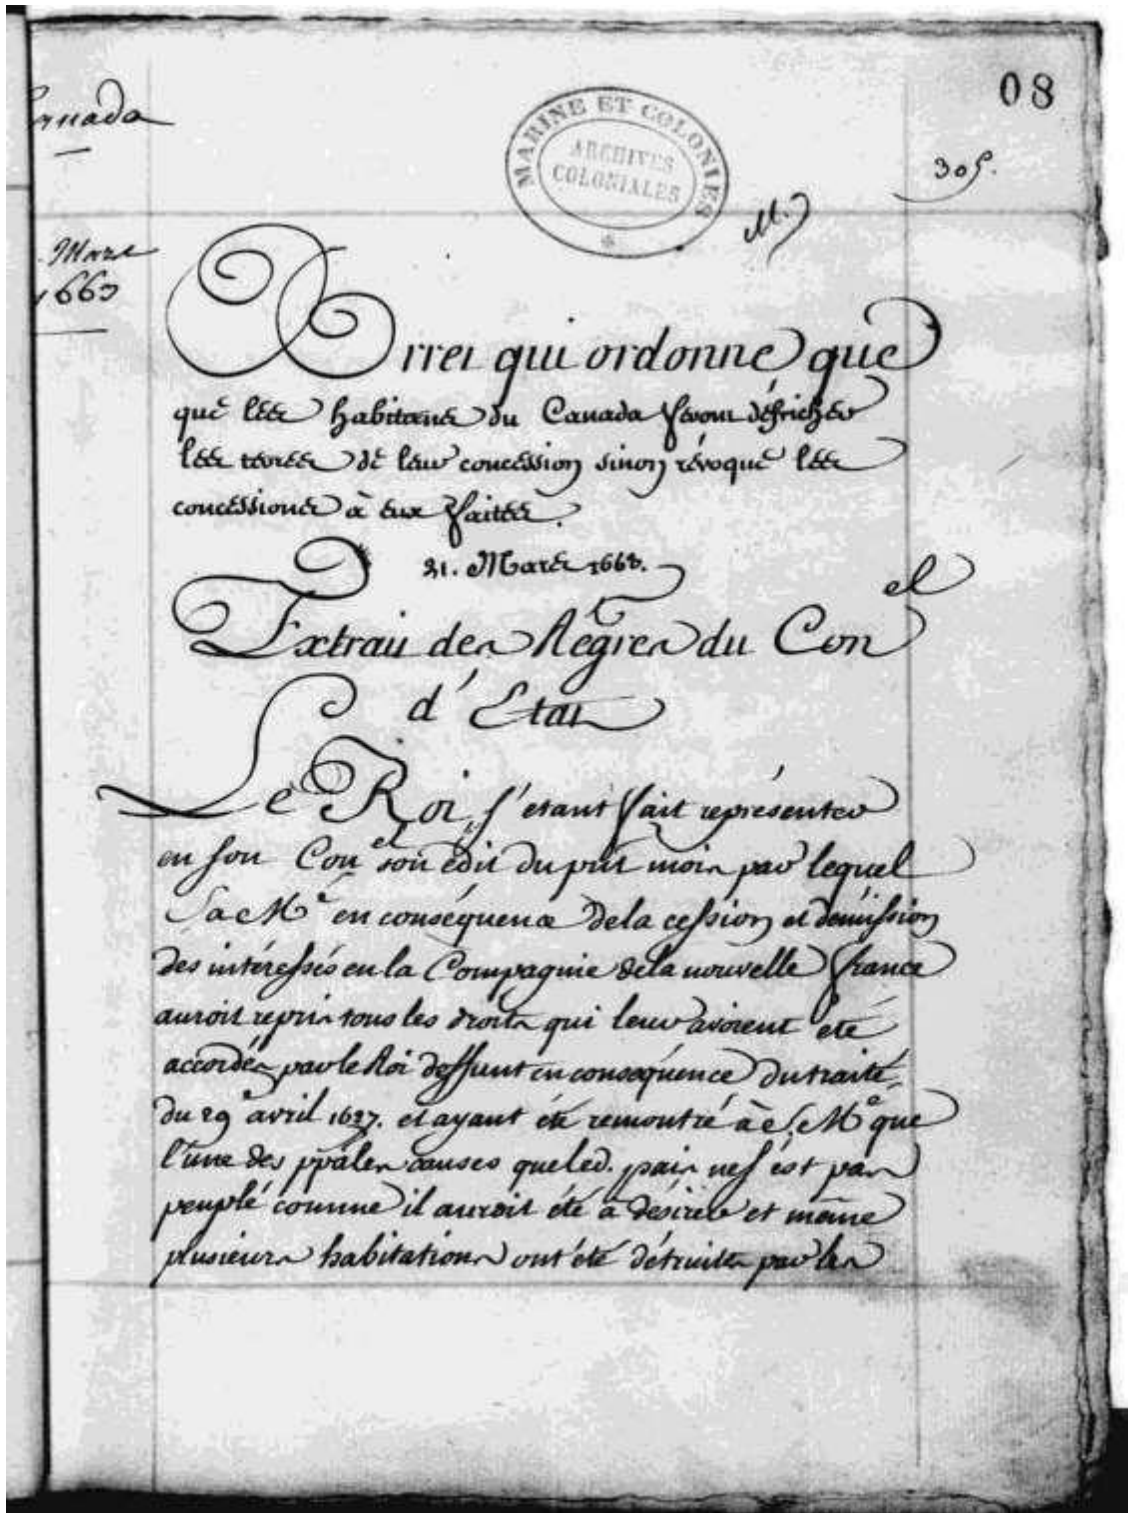 Canada
08
MARINE ET COLONIES
ARCHIVES
COLONIALES
305.
M.
Mars
1663
Arret qui ordonne que
que les habitans du Canada feront défricher
les terres de leur concession sinon révoque les
concessions à eux faites.
21. Mars 1663.
Extrait des Régres du Conel
d'Etat
Le Roi s'etant fait représenter
en son Conel son édit du prnt mois par lequel
Sa Mé en conséquence de la cession et démission
des intéressés en la Compagnie de la nouvelle france
auroit repris tous les droits qui leur avoient été
accordés par le Roi deffunt en conséquence du traité
du 29e avril 1627. et ayant été remontré à S. Mé que
l'une des ppales causes que led. païs ne s'est pas
peuplé comme il auroit été à désirer et même
plusieurs habitations ont été détruites par les